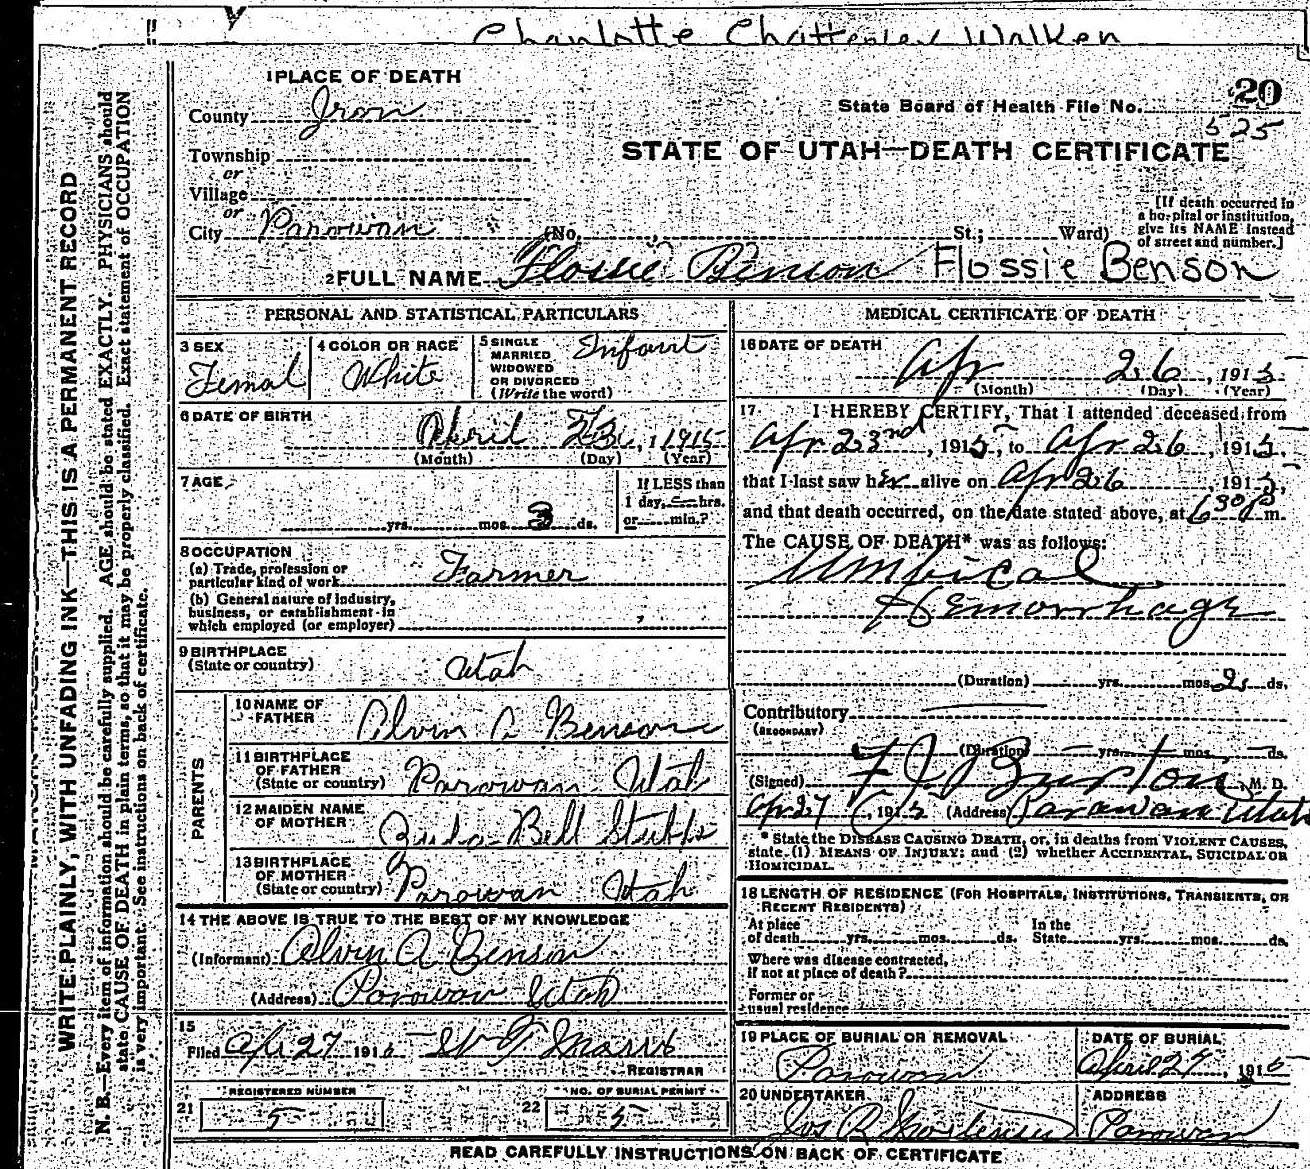 Charlotte Chatterley Walker
1 PLACE OF DEATH
County Iron
State Board of Health File No. 20
525
Township
or
Village
or
City Parowan (No. St.; Ward)
STATE OF UTAH—DEATH CERTIFICATE
[If death occurred in
a hospital or institution,
give its NAME instead
of street and number.]
2 FULL NAME Flossie Benson Flossie Benson
PERSONAL AND STATISTICAL PARTICULARS
3 SEX
Femal
4 COLOR OR RACE
White
5 SINGLE
MARRIED
WIDOWED
OR DIVORCED
(Write the word)
Infant
6 DATE OF BIRTH
April 23, 1915
(Month) (Day) (Year)
7 AGE
yrs. mos. 3 ds.
If LESS than
1 day, hrs.
or min.?
8 OCCUPATION
(a) Trade, profession or
particular kind of work Farmer
(b) General nature of industry,
business, or establishment in
which employed (or employer)
9 BIRTHPLACE
(State or country) Utah
PARENTS
10 NAME OF
FATHER Alvin A Benson
11 BIRTHPLACE
OF FATHER
(State or country) Parowan Utah
12 MAIDEN NAME
OF MOTHER Bell Stubbs
13 BIRTHPLACE
OF MOTHER
(State or country) Parowan Utah
14 THE ABOVE IS TRUE TO THE BEST OF MY KNOWLEDGE
(Informant) Alvin A Benson
(Address) Parowan Utah
15
Filed Apr 27 191
REGISTRAR
21 REGISTERED NUMBER
5
22 NO. OF BURIAL PERMIT
5
MEDICAL CERTIFICATE OF DEATH
16 DATE OF DEATH
Apr 26, 1915
(Month) (Day) (Year)
17. I HEREBY CERTIFY, That I attended deceased from
Apr 23nd, 1915, to Apr 26, 1915,
that I last saw her alive on Apr 26, 1915,
and that death occurred, on the date stated above, at 6 30 P m.
The CAUSE OF DEATH* was as follows:
Umbical
Hemorrhage
(Duration) yrs. mos. 2 ds.
Contributory
(SECONDARY)
(Duration) yrs. mos. ds.
(Signed) F J Burton, M. D.
Apr 27, 1915 (Address) Parowan Utah
* State the DISEASE CAUSING DEATH, or, in deaths from VIOLENT CAUSES,
state (1) MEANS OF INJURY; and (2) whether ACCIDENTAL, SUICIDAL OR
HOMICIDAL.
18 LENGTH OF RESIDENCE (FOR HOSPITALS, INSTITUTIONS, TRANSIENTS, OR
RECENT RESIDENTS)
At place
of death yrs. mos. ds.
In the
State yrs. mos. ds.
Where was disease contracted,
if not at place of death?
Former or
usual residence
19 PLACE OF BURIAL OR REMOVAL
Parowan
DATE OF BURIAL
April 27, 1915
20 UNDERTAKER
Jos R Mortensen
ADDRESS
Parowan
READ CAREFULLY INSTRUCTIONS ON BACK OF CERTIFICATE
WRITE PLAINLY, WITH UNFADING INK—THIS IS A PERMANENT RECORD
N. B.—Every item of information should be carefully supplied. AGE should be stated EXACTLY. PHYSICIANS should
state CAUSE OF DEATH in plain terms, so that it may be properly classified. Exact statement of OCCUPATION
is very important. See instructions on back of certificate.